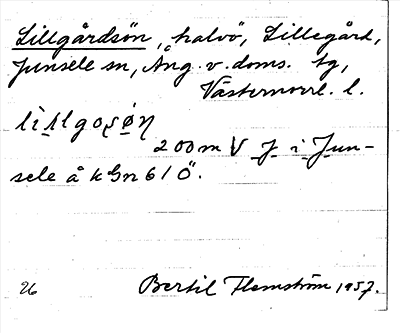 Lillgårdsön, halvö, Lillegård,
Junsele sn, Ång. v. doms. tg,
Västernorrl. l.
200 m V J i Jun-
sele å kGn 61 Ö.
26 Bertil Flemström 1957.